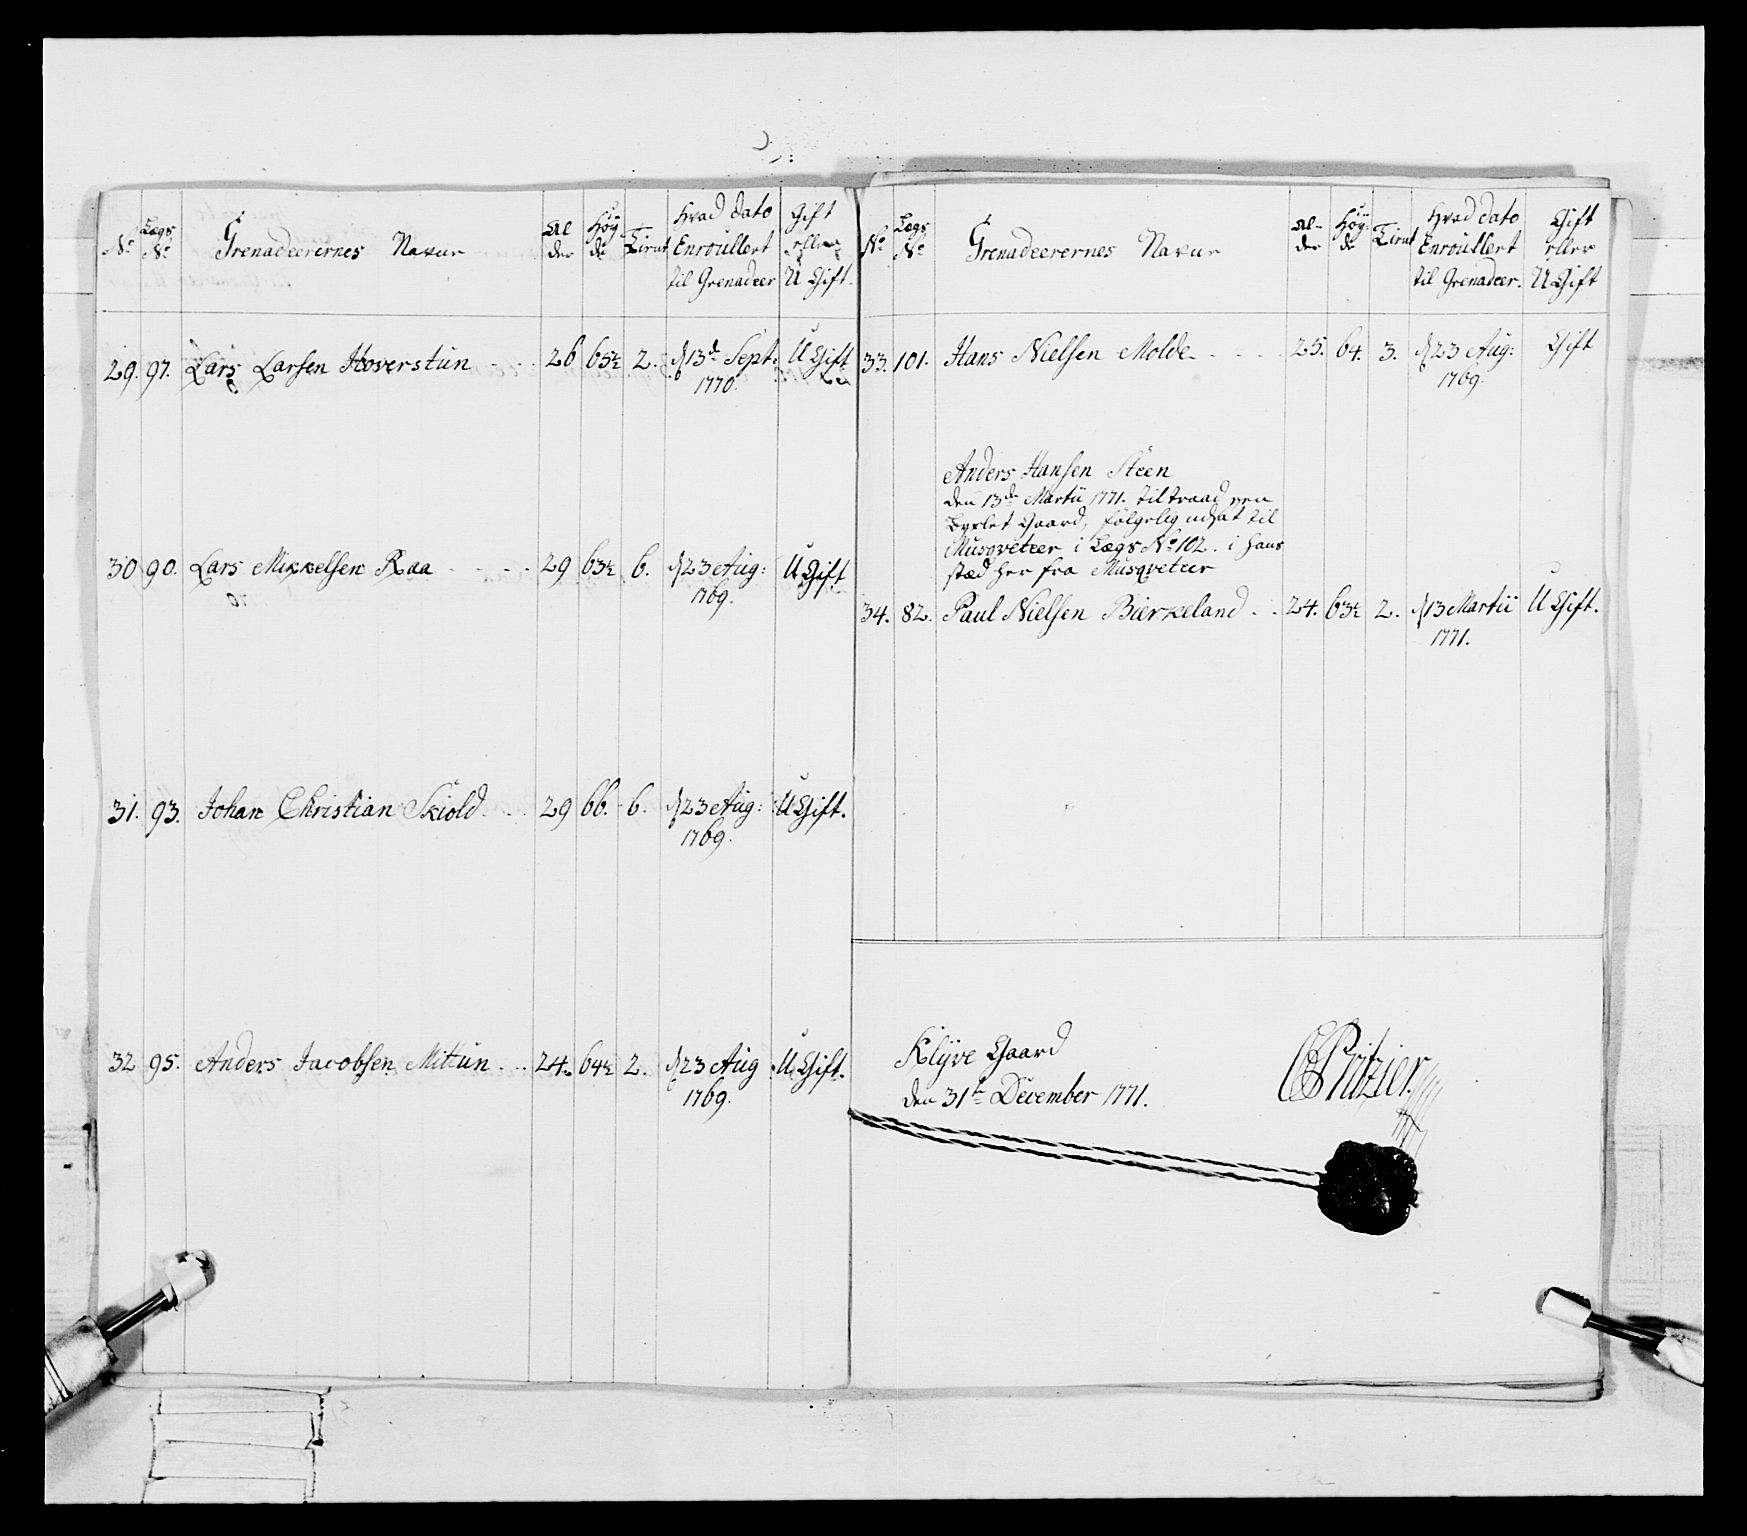 No Lægs No Grenadeerernes Navne Alder Høyde Tient Hvad dato Enroullert til Grenadeer Gift eller U Gift.
29. 97. Lars Larsen Hoverstun 26 65½ 2. d 13de Sept: U Gift
1770.
30 90. Lars Mikkelsen Raa 29 63½ 6. d 23 Aug: U Gift
1769.
31. 93. Johan Christian Skiold 29 66. 6. d 23 Aug: U Gift.
1769.
32 95. Anders Jacobsen Mittun 24. 64½ 2. d 23 Aug U Gift.
1769.
No Lægs No Grenadeerernes Navne Alder Høyde Tient Hvad dato Enroullert til Grenadeer. Gift eller U Gift
33. 101. Hans Nielsen Molde 25. 64. 3. d 23 Aug: Gift
1769.
Anders Hansen Steen
den 13de Martii 1771. tiltraad een
Byxlet Gaard, følgelig udsat til
Musqveteer i Lægs No 102. i hans
stæd her fra Musqveteer
34. 82. Paul Nielsen Bierkeland 24. 63½ 2. d 13 Martii U Gift.
1771.
Klÿve Gaard
den 31te December 1771.
Pritzier.